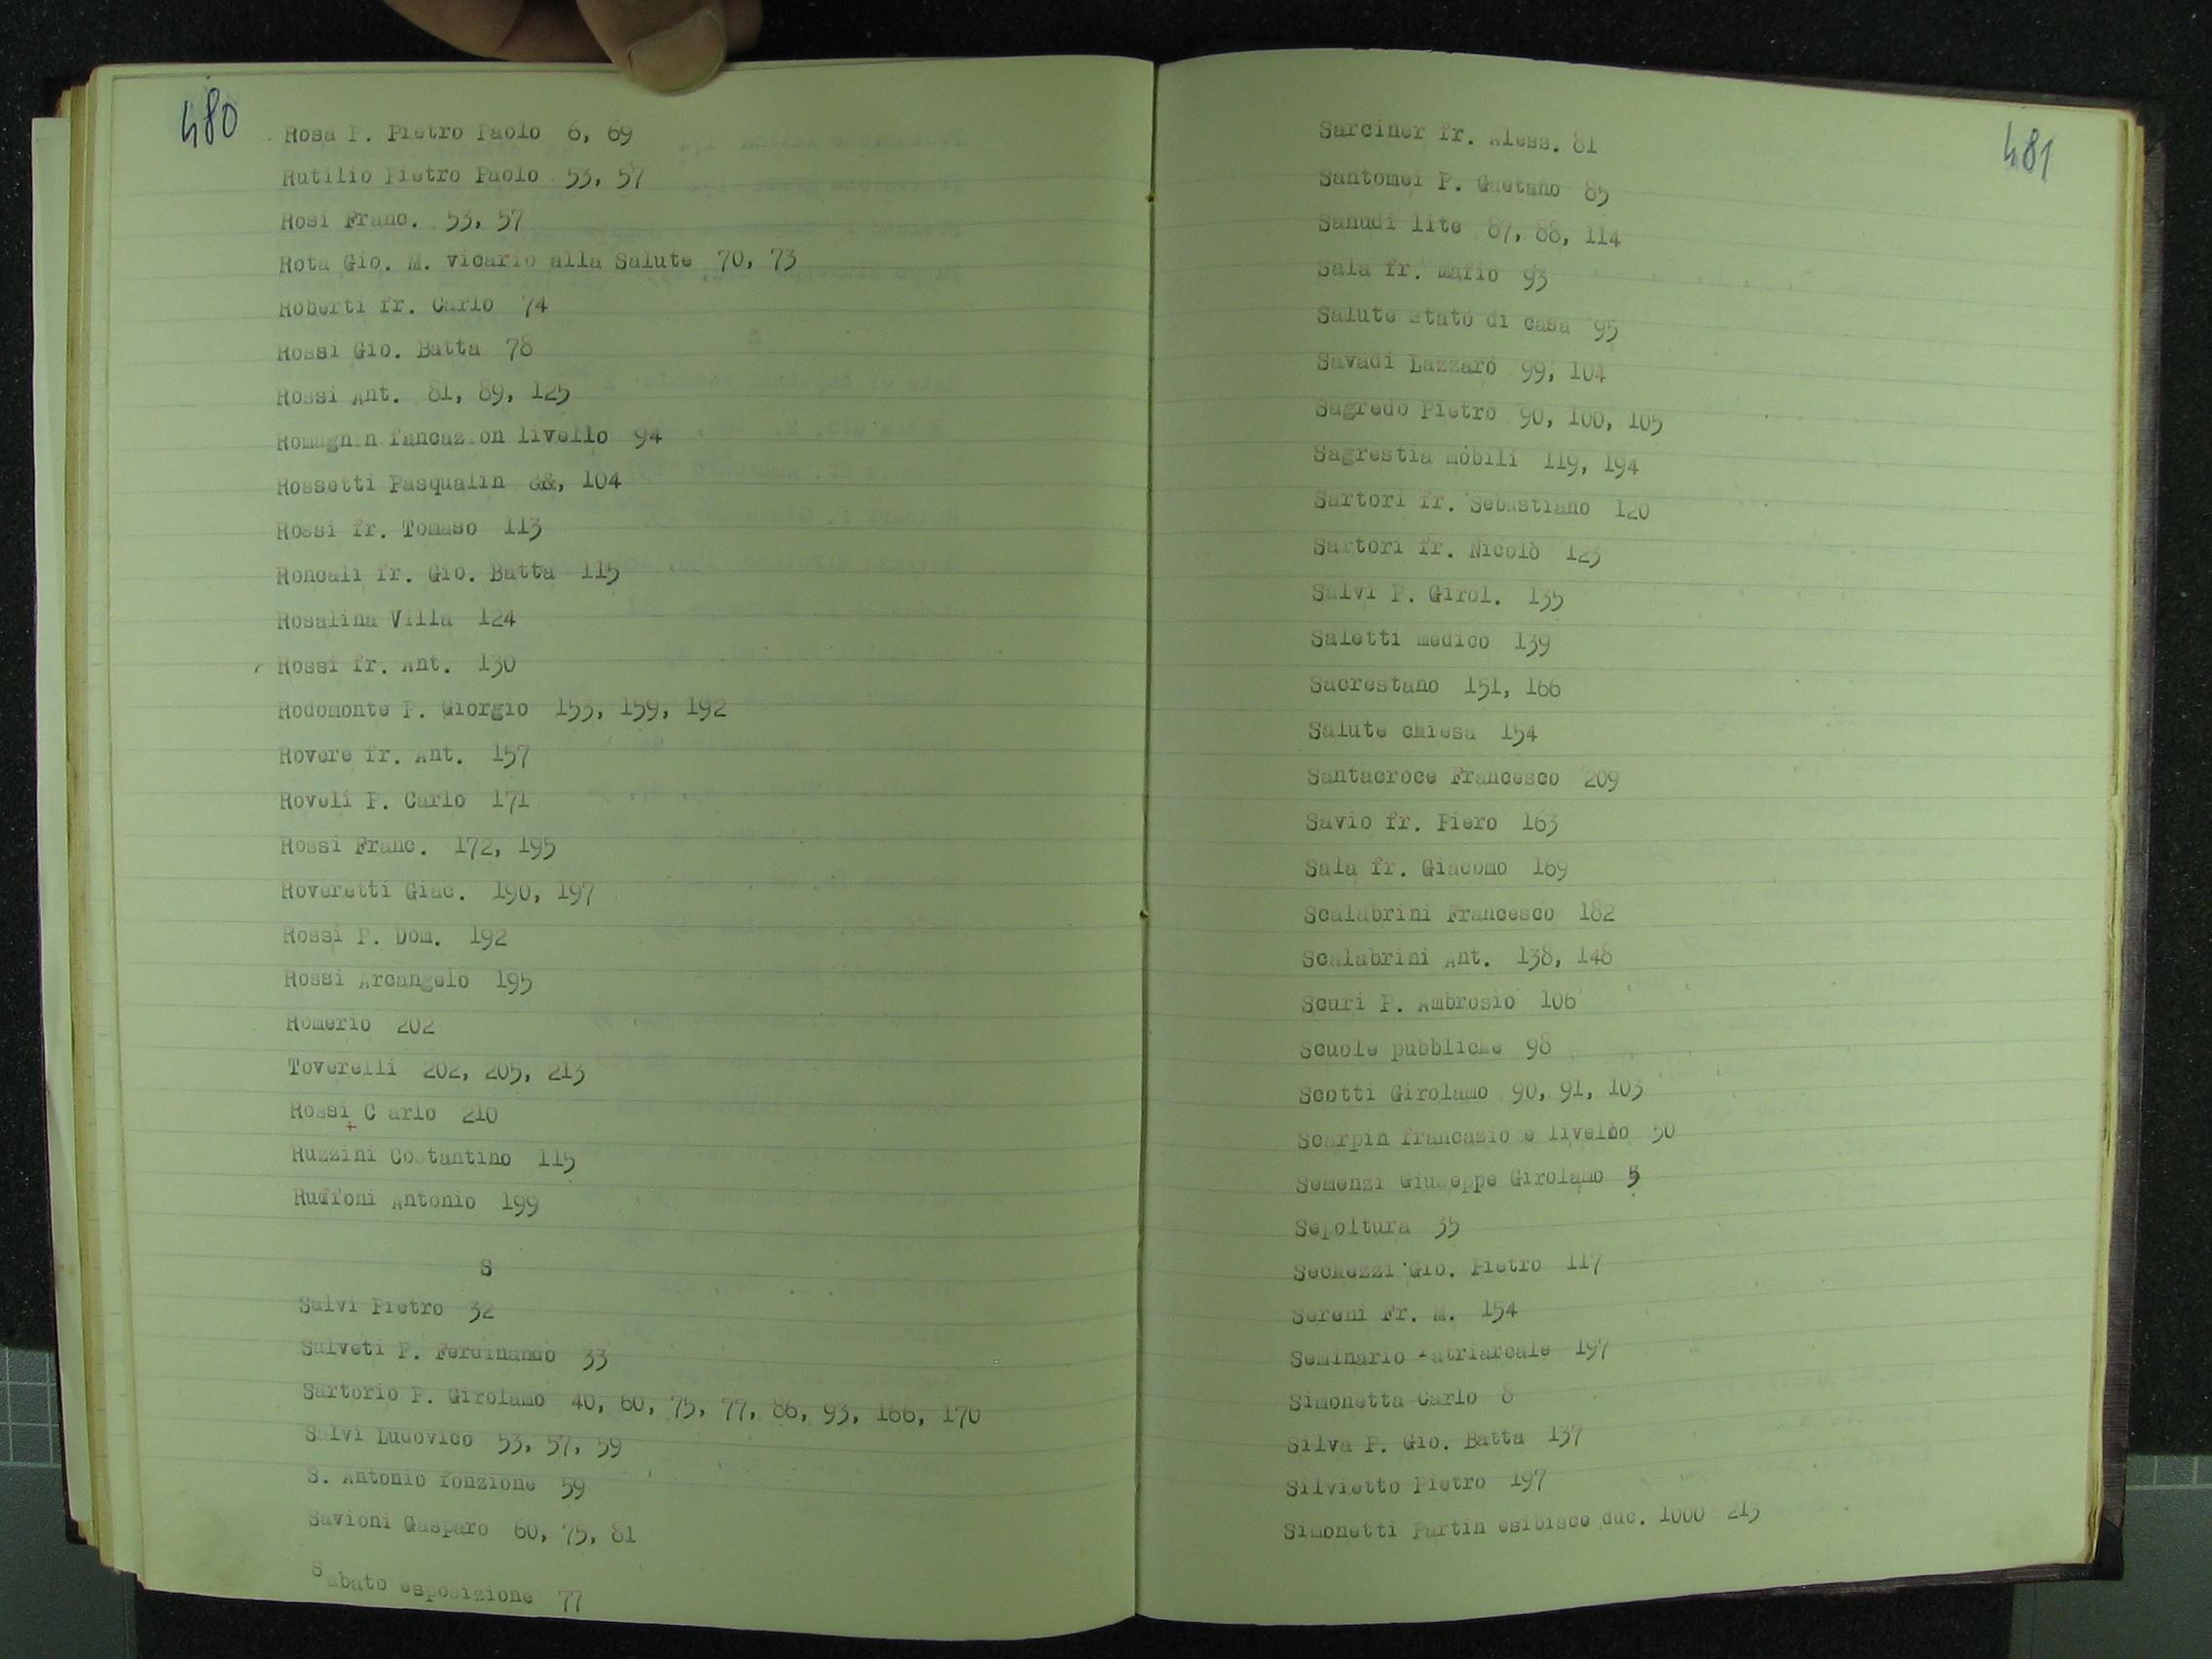 480
Rosa P. Pietro Paolo 6, 69
Rutilio Pietro Paolo 53, 57
Rosi Franc. 53, 57
Rota Gio. M. vicario alla Salute 70, 73
Roberti fr. Carlo 74
Rossi Gio. Batta 78
Rossi Ant. 81, 89, 125
Romagnin fancazion livello 94
Rossetti Pasqualin &&, 104
Rossi fr. Tomaso 113
Roncali fr. Gio. Batta 115
Rosalina Villa 124
Rossi fr. Ant. 130
Rodomonte P. Giorgio 153, 159, 192
Rovere fr. Ant. 157
Roveli P. Carlo 171
Rossi Franc. 172, 195
Roveretti Giac. 190, 197
Rossi P. Dom. 192
Rossi Arcangelo 195
Romerio 202
Toverelli 202, 205, 213
Rossi C arlo 210
Ruzzini Costantino 115
Ruffoni Antonio 199
S
Salvi Pietro 32
Salveti P. Ferdinando 33
Sartorio P. Girolamo 40, 60, 75, 77, 86, 93, 166, 170
Salvi Ludovico 53, 57, 59
S. Antonio fonzione 59
Savioni Gasparo 60, 75, 81
Sabato esposizione 77
481
Sarciner fr. Aless. 81
Santomei P. Gaetano 85
Sanudi lite 87, 88, 114
Sala fr. Mafio 93
Salute stato di casa 95
Savadi Lazzaro 99, 104
Sagredo Pietro 90, 100, 105
Sagrestia mobili 119, 194
Sartori fr. Sebastiano 120
Sartori fr. Nicolò 123
Salvi P. Girol. 135
Saletti medico 139
Sacrestano 151, 166
Salute chiesa 154
Santacroce Francesco 209
Savio fr. Piero 163
Sala fr. Giacomo 169
Scalabrini Francesco 182
Scalabrini Ant. 138, 148
Scuri P. Ambrosio 106
Scuole pubbliche 98
Scotti Girolamo 90, 91, 103
Scarpin francazio e livello 50
Semenzi Giuseppe Girolamo 5
Sepoltura 35
Sechezzi Gio. Pietro 117
Sereni Fr. M. 154
Seminario Patriarcale 197
Simonetta Carlo 8
Silva P. Gio. Batta 137
Silvietto Pietro 197
Simonetti Partin esibisce duc. 1000 213